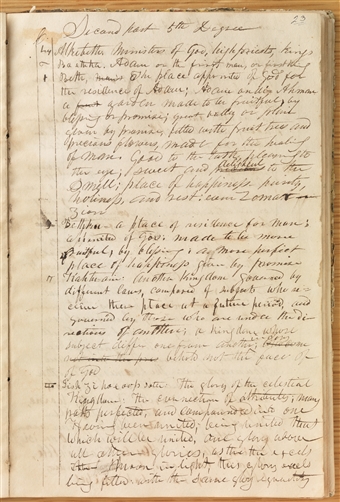 23
Second part 5th Degree
Alkibeth Ministers of God, high priests, Kings
Baeth ka, Adam or the first man, or first king
Beth, The place appointed of God for
the residence of Adam; Adam ondi Ahman
a garden made to be fruitful, by
blessing or promise; great valley or plain
given by promise, filled with fruit trees and
precious flowers, made for the healing
of man. Good to the taste, pleasing to
the eye; sweet and delightful to the
smell; place of happiness purity,
holiness, and rest: even Zomar
Zion
Bethka a place of residence for man;
appointed of God: made to be more
fruitful; by blessing: a more perfect
place of happiness given by promise
another Kingdom governed by
different laws, composed of subjects who re-
ceive their place at a future period, and
governed by those who are under the di-
rections of another; a Kingdom whose
subjects differ one from another; in glory
behold not the face of
of God
The glory of the celestial
Kingdom: the connection of attributes; many
parts perfected, and compounded into one
having been united, being united that
which will be united, one glory above
all other glories, as the excels
the moon in light, this glory excels
being filled with the same glory